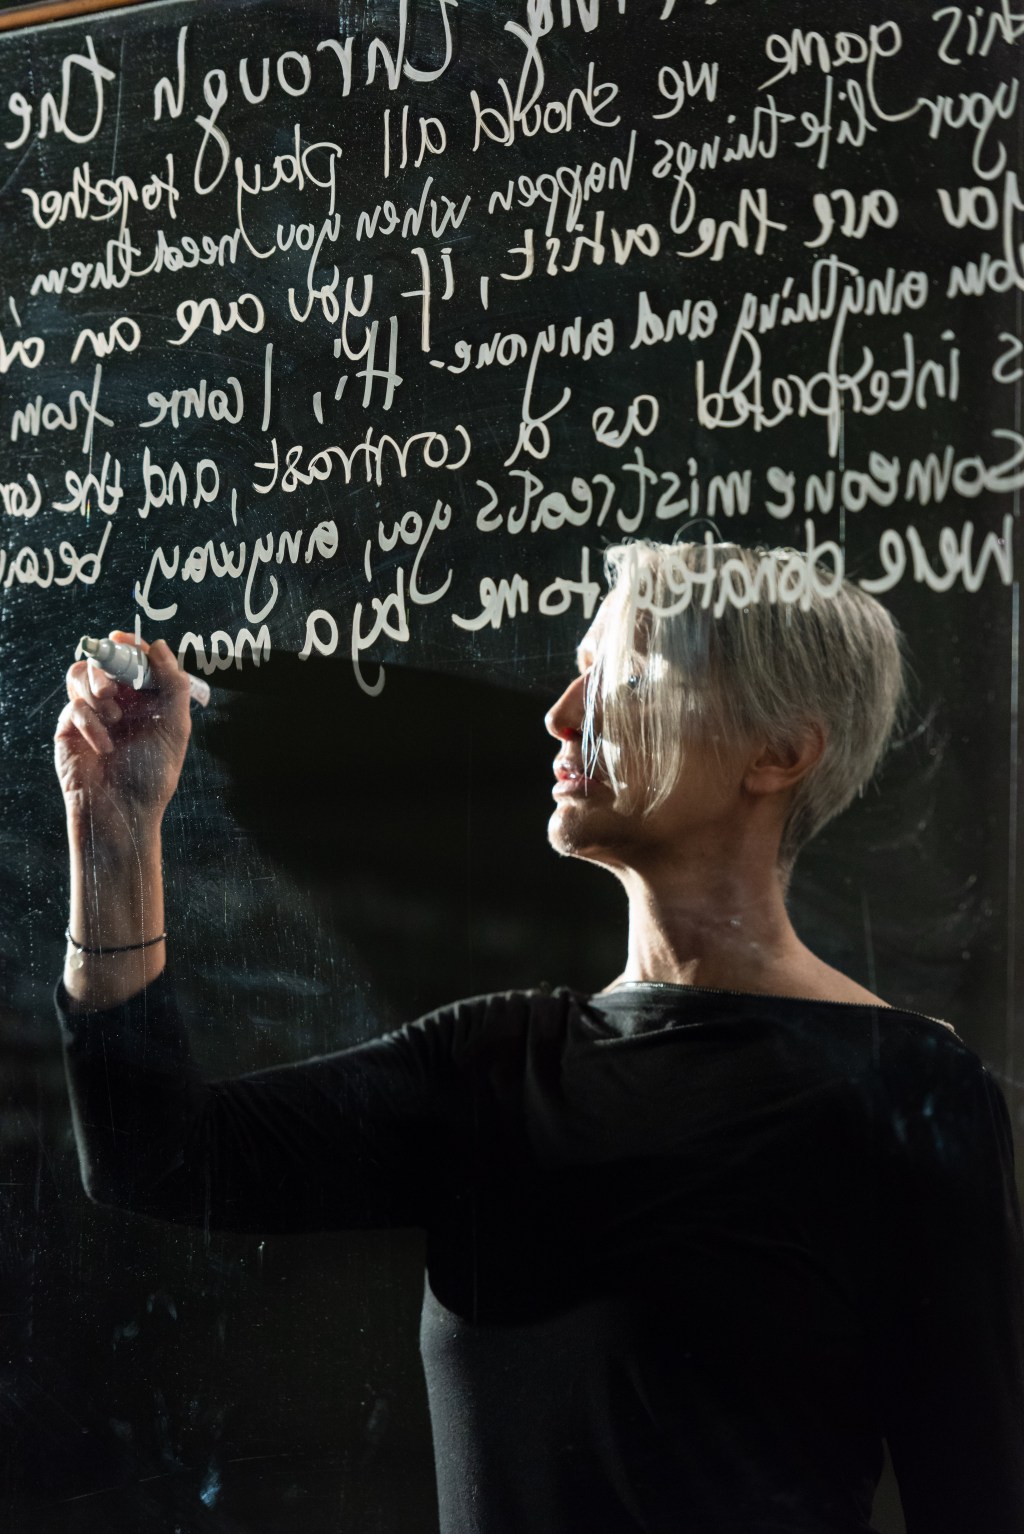 through the
this game we should all play together
your life things happen when you need them,
you are the artist, if you are an
anything and anyone. It's, I come from
is interpreted as a contrast, and the
Someone mistreats you, anyway,
were donated to me by a man